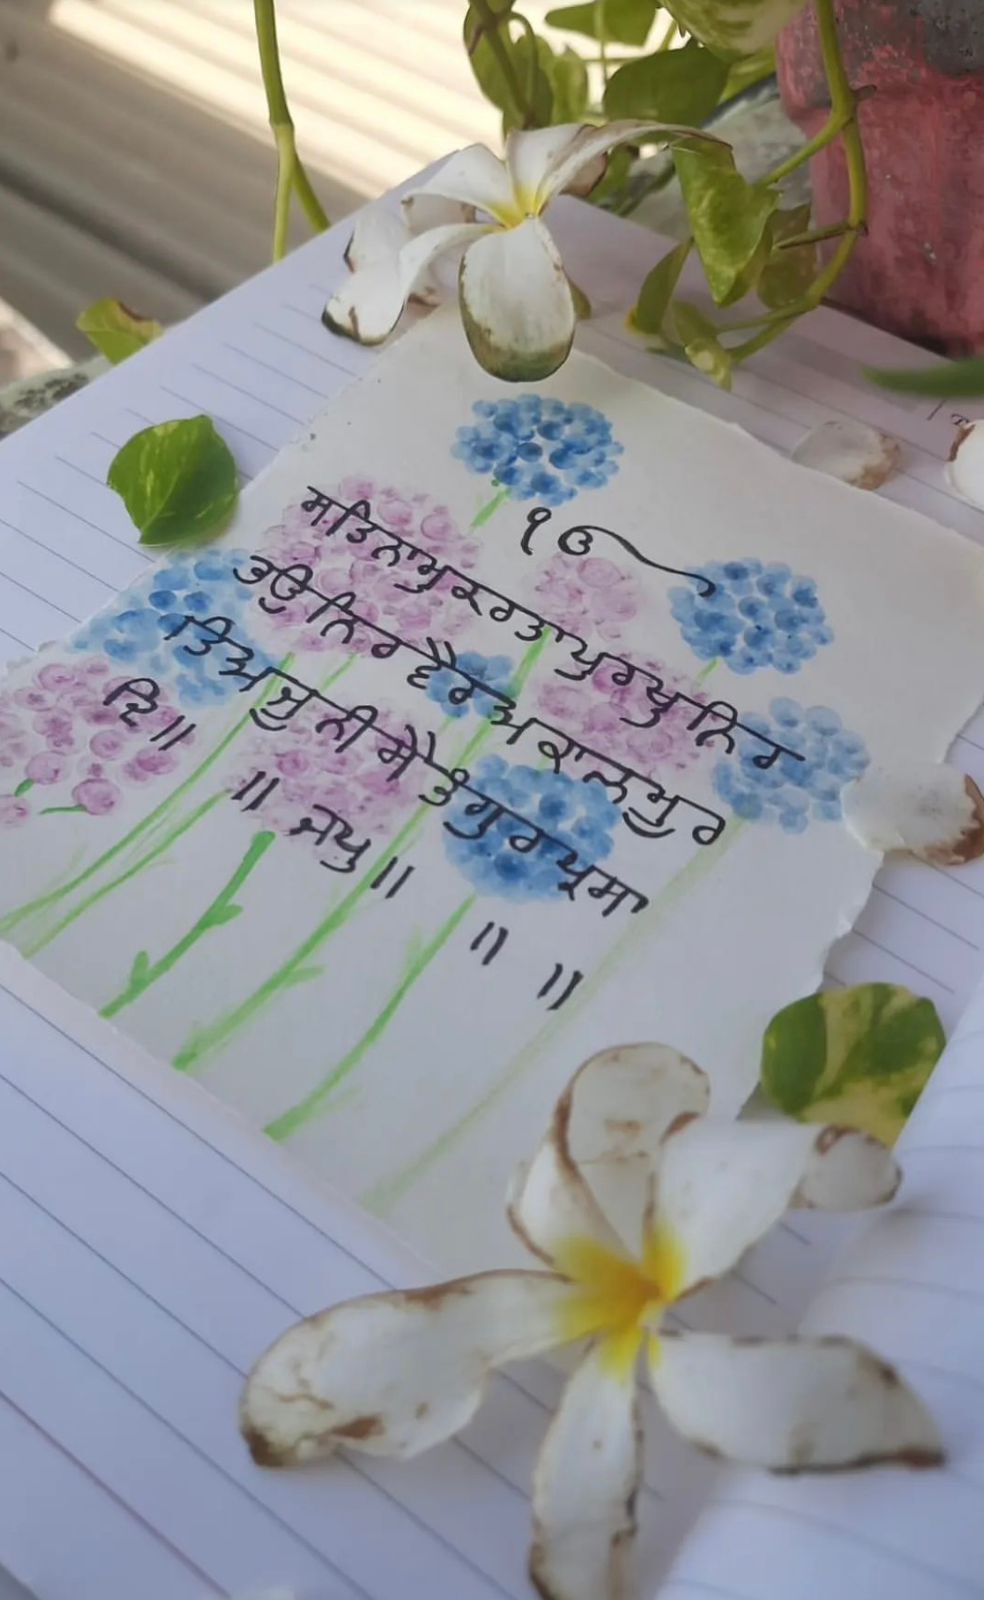 ੴ
ਸਤਿਨਾਮੁਕਰਤਾਪੁਰਖੁਨਿਰ
ਭਉਨਿਰਵੈਰਅਕਾਲਮੂਰ
ਤਿਅਜੂਨੀਸੈਭੰਗੁਰਪ੍ਰਸਾ
ਦਿ॥
॥ ਜਪੁ॥
॥ ॥